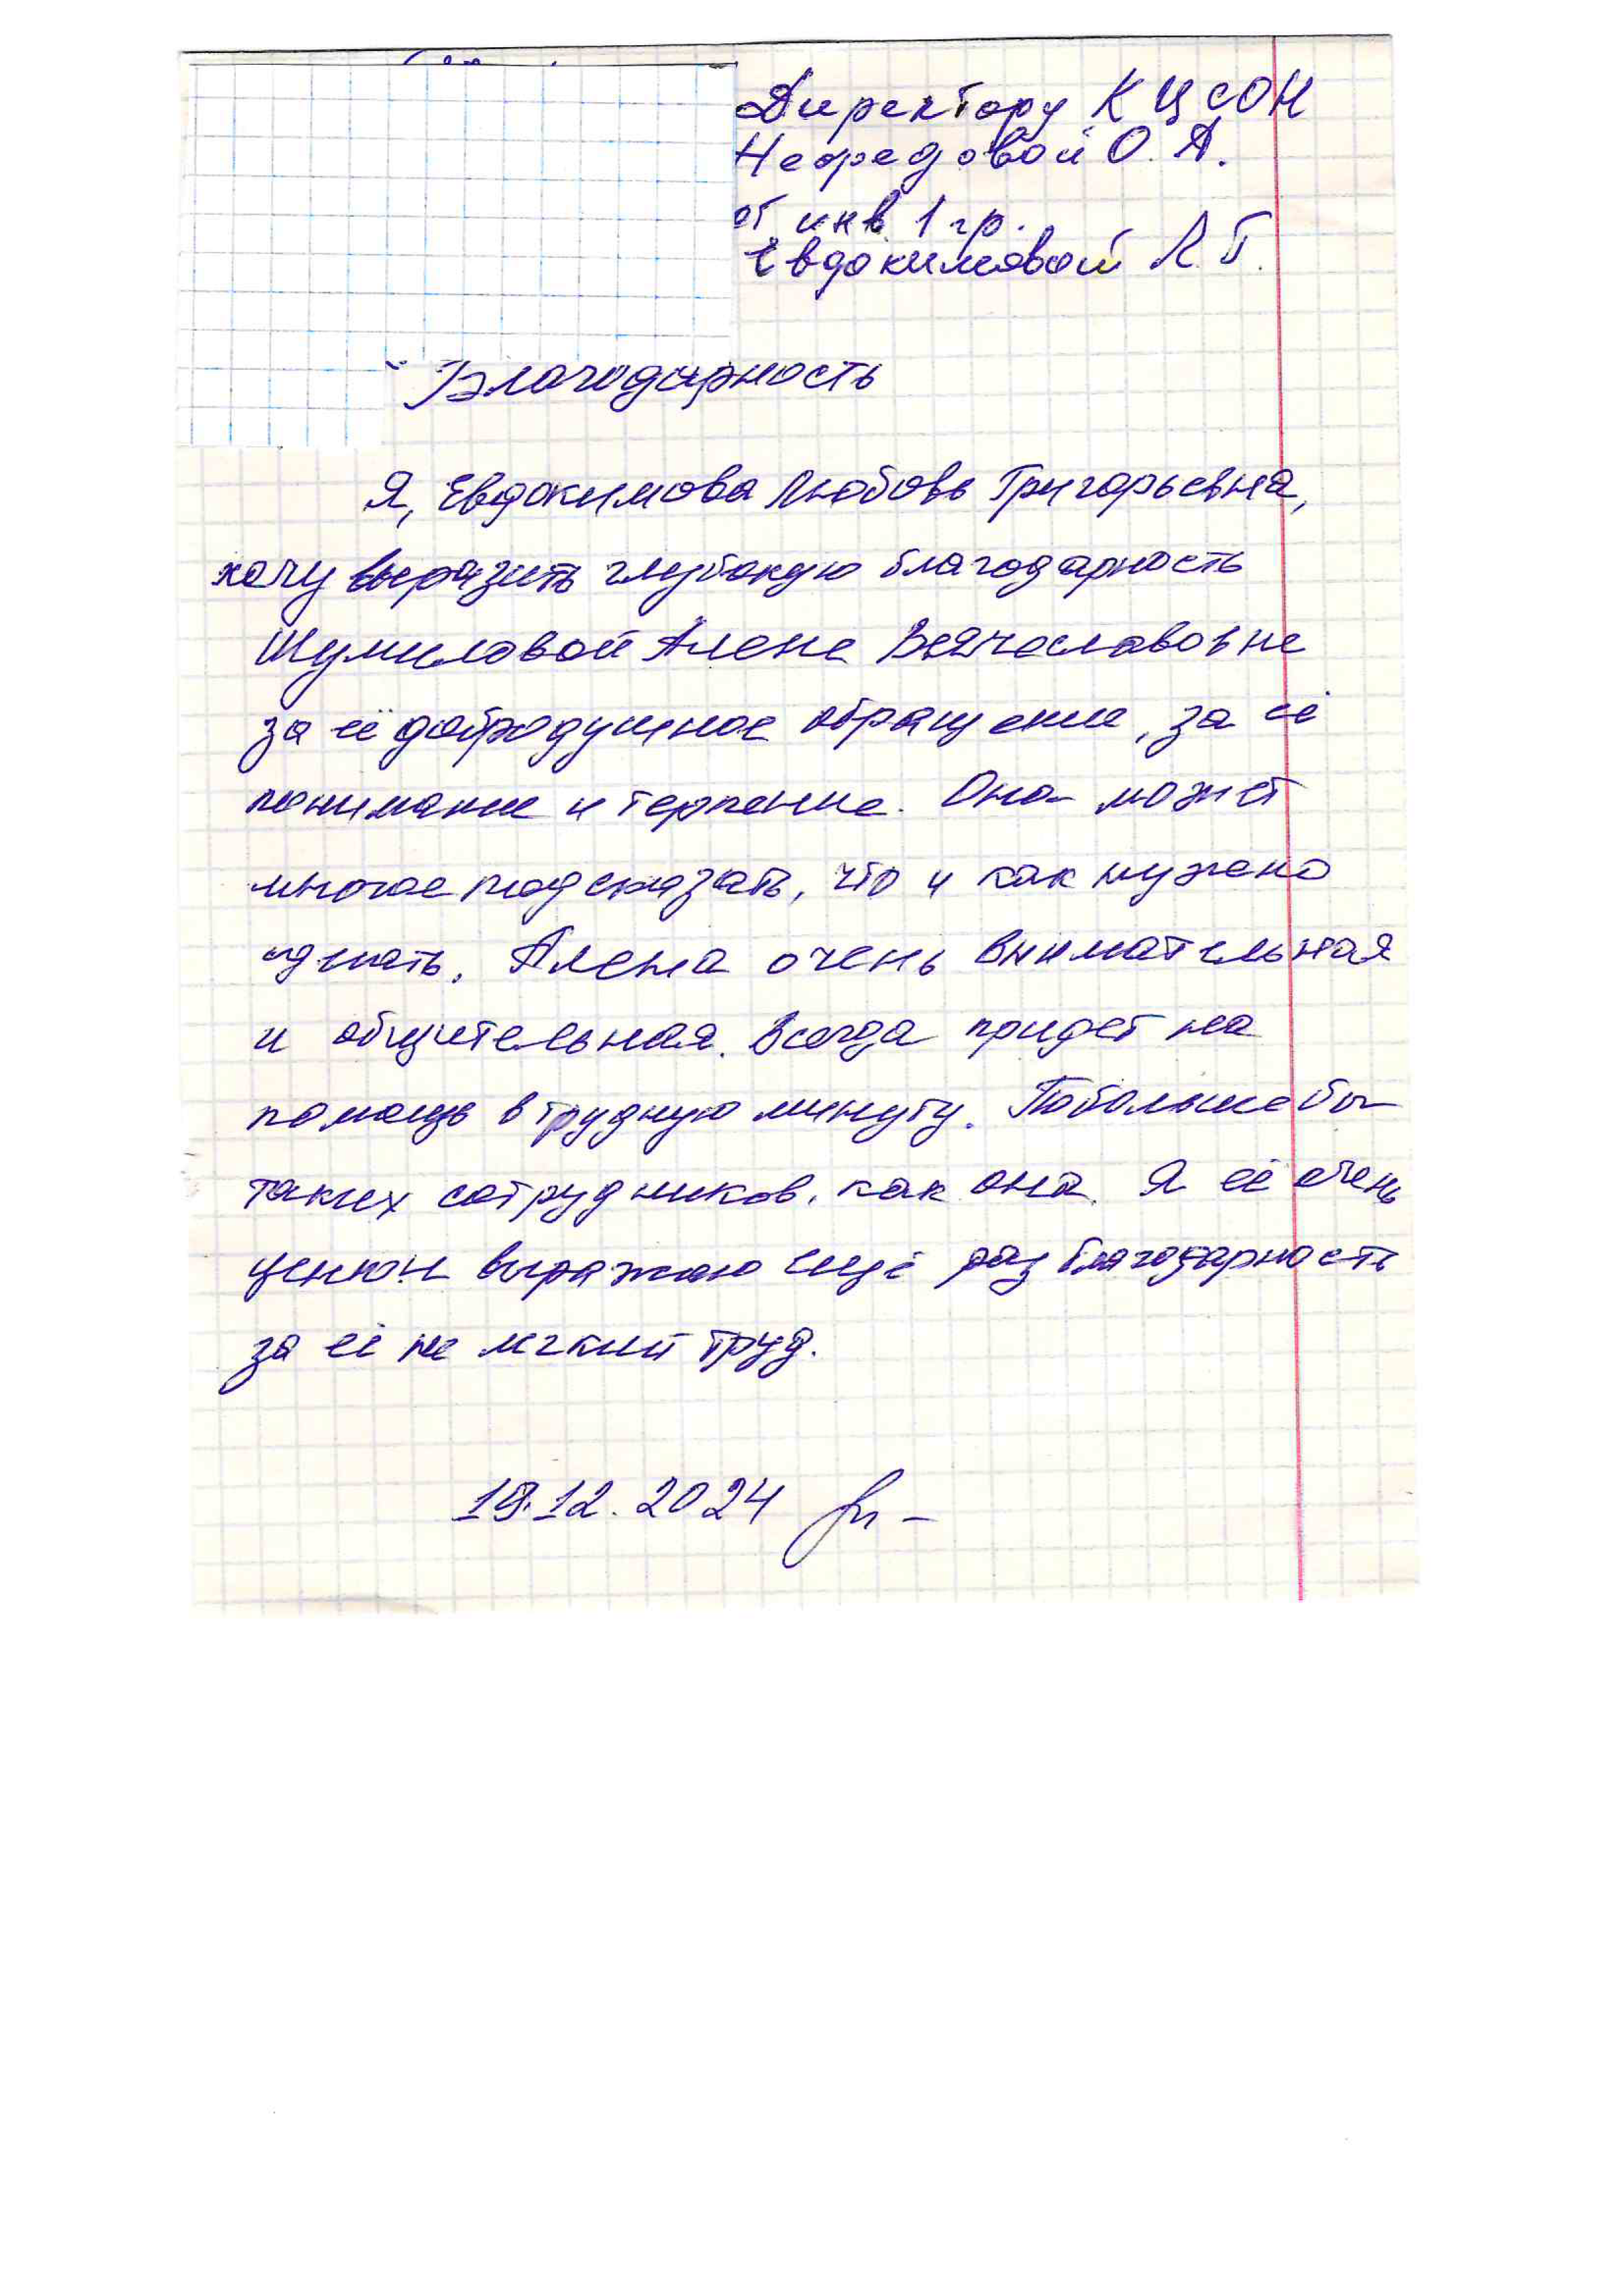 Директору КЦСОН
Нефедовой О. А.
от инв 1 гр.
Евдокимовой Л. Г.
Благодарность
Я, Евдокимова Любовь Григорьевна,
хочу выразить глубокую благодарность
Шумиловой Алене Вячеславовне
за её добродушное обращение, за её
понимание и терпение. Она может
многое подсказать, что и как нужно
сделать. Алена очень внимательная
и общительная. Всегда придет на
помощь в трудную минуту. Побольше бы
таких сотрудников, как она. Я её очень
ценю и выражаю ещё раз благодарность
за её не легкий труд.
19.12.2024